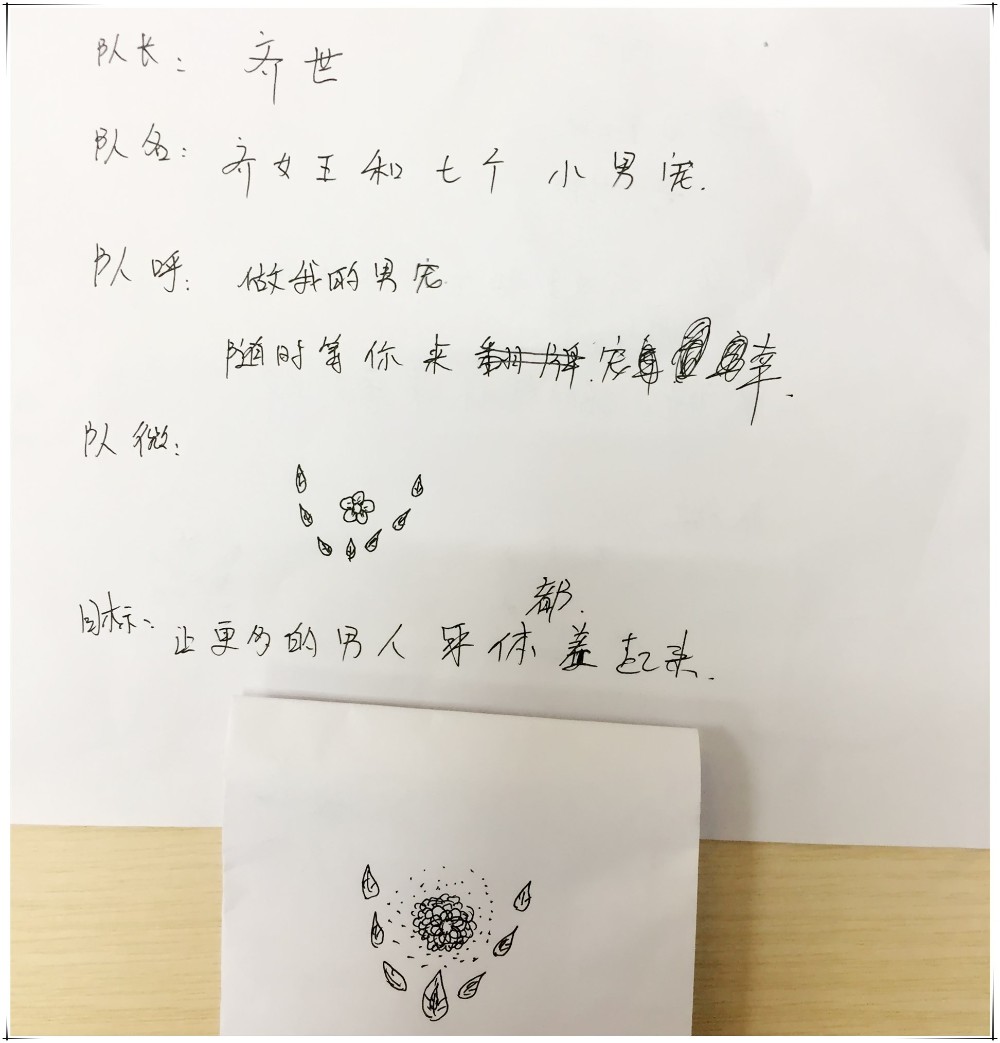 队长: 齐世
队名: 齐女王和七个小男宠.
队呼: 做我的男宠
随时等你来翻牌.宠幸.
队微:
都.
目标: 让更多的男人 体 盖起来.